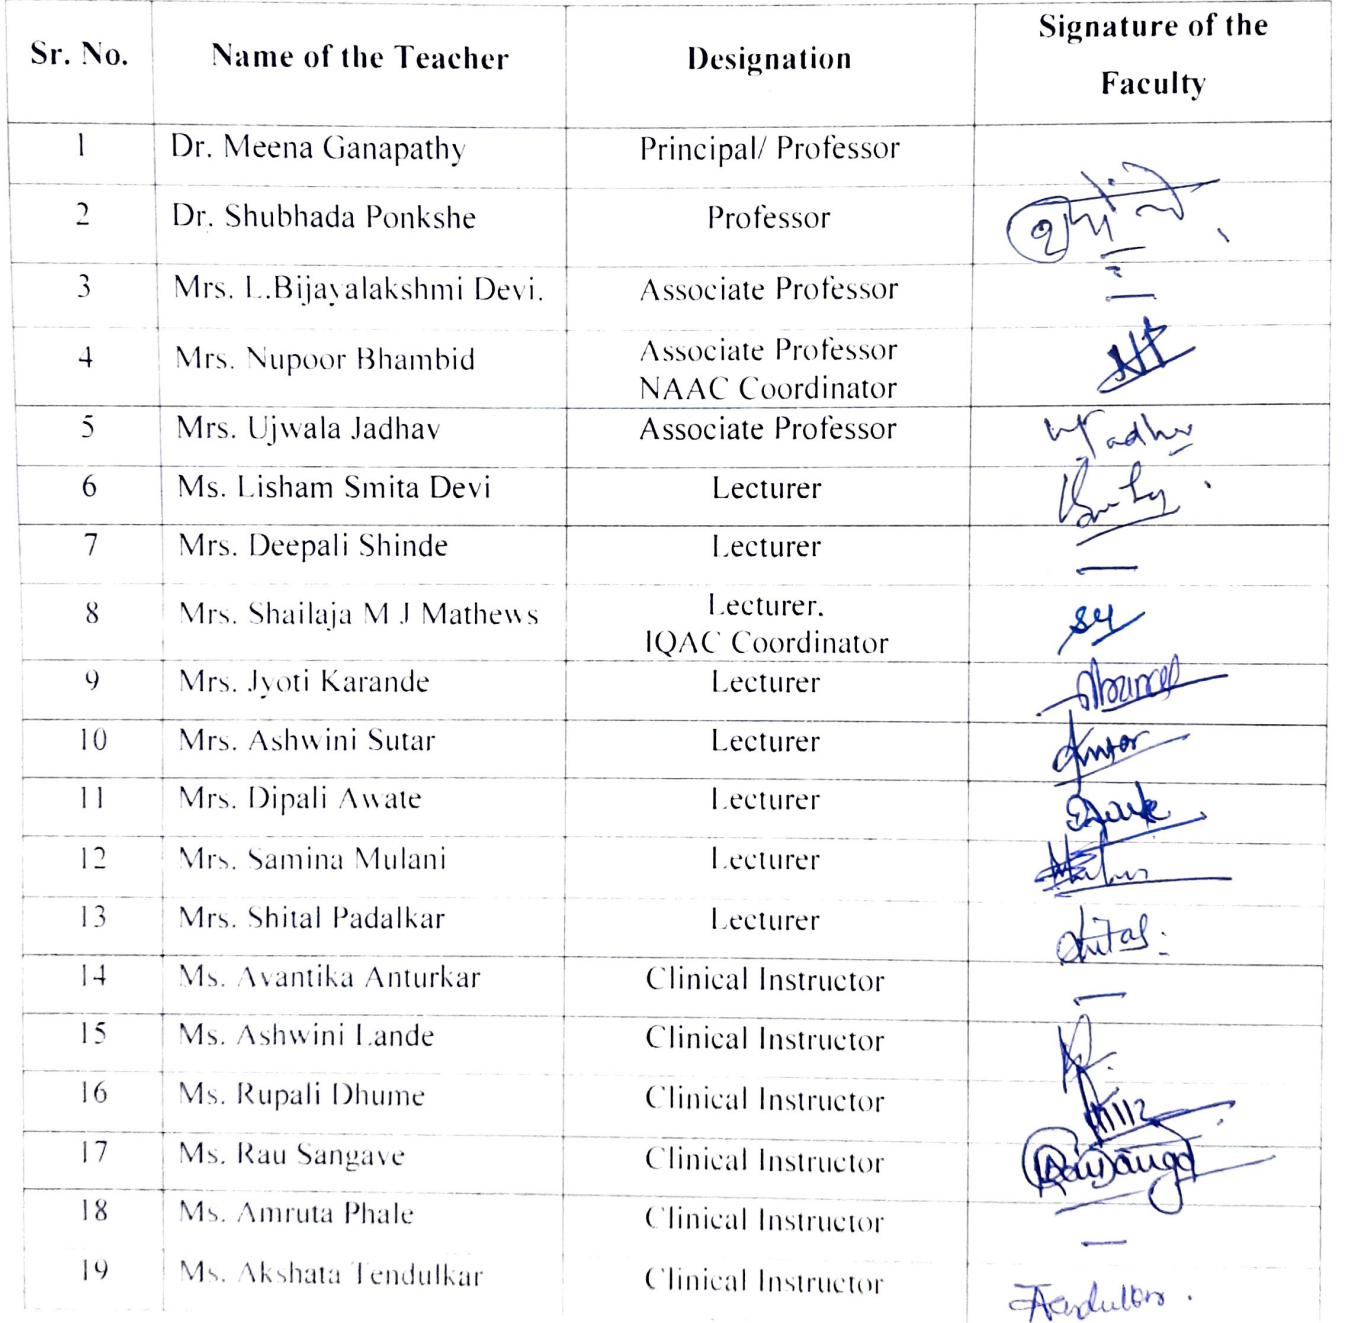 Sr. No. Name of the Teacher Designation Signature of the
Faculty
1 Dr. Meena Ganapathy Principal/ Professor
2 Dr. Shubhada Ponkshe Professor
3 Mrs. L.Bijayalakshmi Devi. Associate Professor
4 Mrs. Nupoor Bhambid Associate Professor
NAAC Coordinator
5 Mrs. Ujwala Jadhav Associate Professor
6 Ms. Lisham Smita Devi Lecturer
7 Mrs. Deepali Shinde Lecturer
8 Mrs. Shailaja M J Mathews Lecturer.
IQAC Coordinator
9 Mrs. Jyoti Karande Lecturer
10 Mrs. Ashwini Sutar Lecturer
11 Mrs. Dipali Awate Lecturer
12 Mrs. Samina Mulani Lecturer
13 Mrs. Shital Padalkar Lecturer
14 Ms. Avantika Anturkar Clinical Instructor
15 Ms. Ashwini Lande Clinical Instructor
16 Ms. Rupali Dhume Clinical Instructor
17 Ms. Rau Sangave Clinical Instructor
18 Ms. Amruta Phale Clinical Instructor
19 Ms. Akshata Tendulkar Clinical Instructor